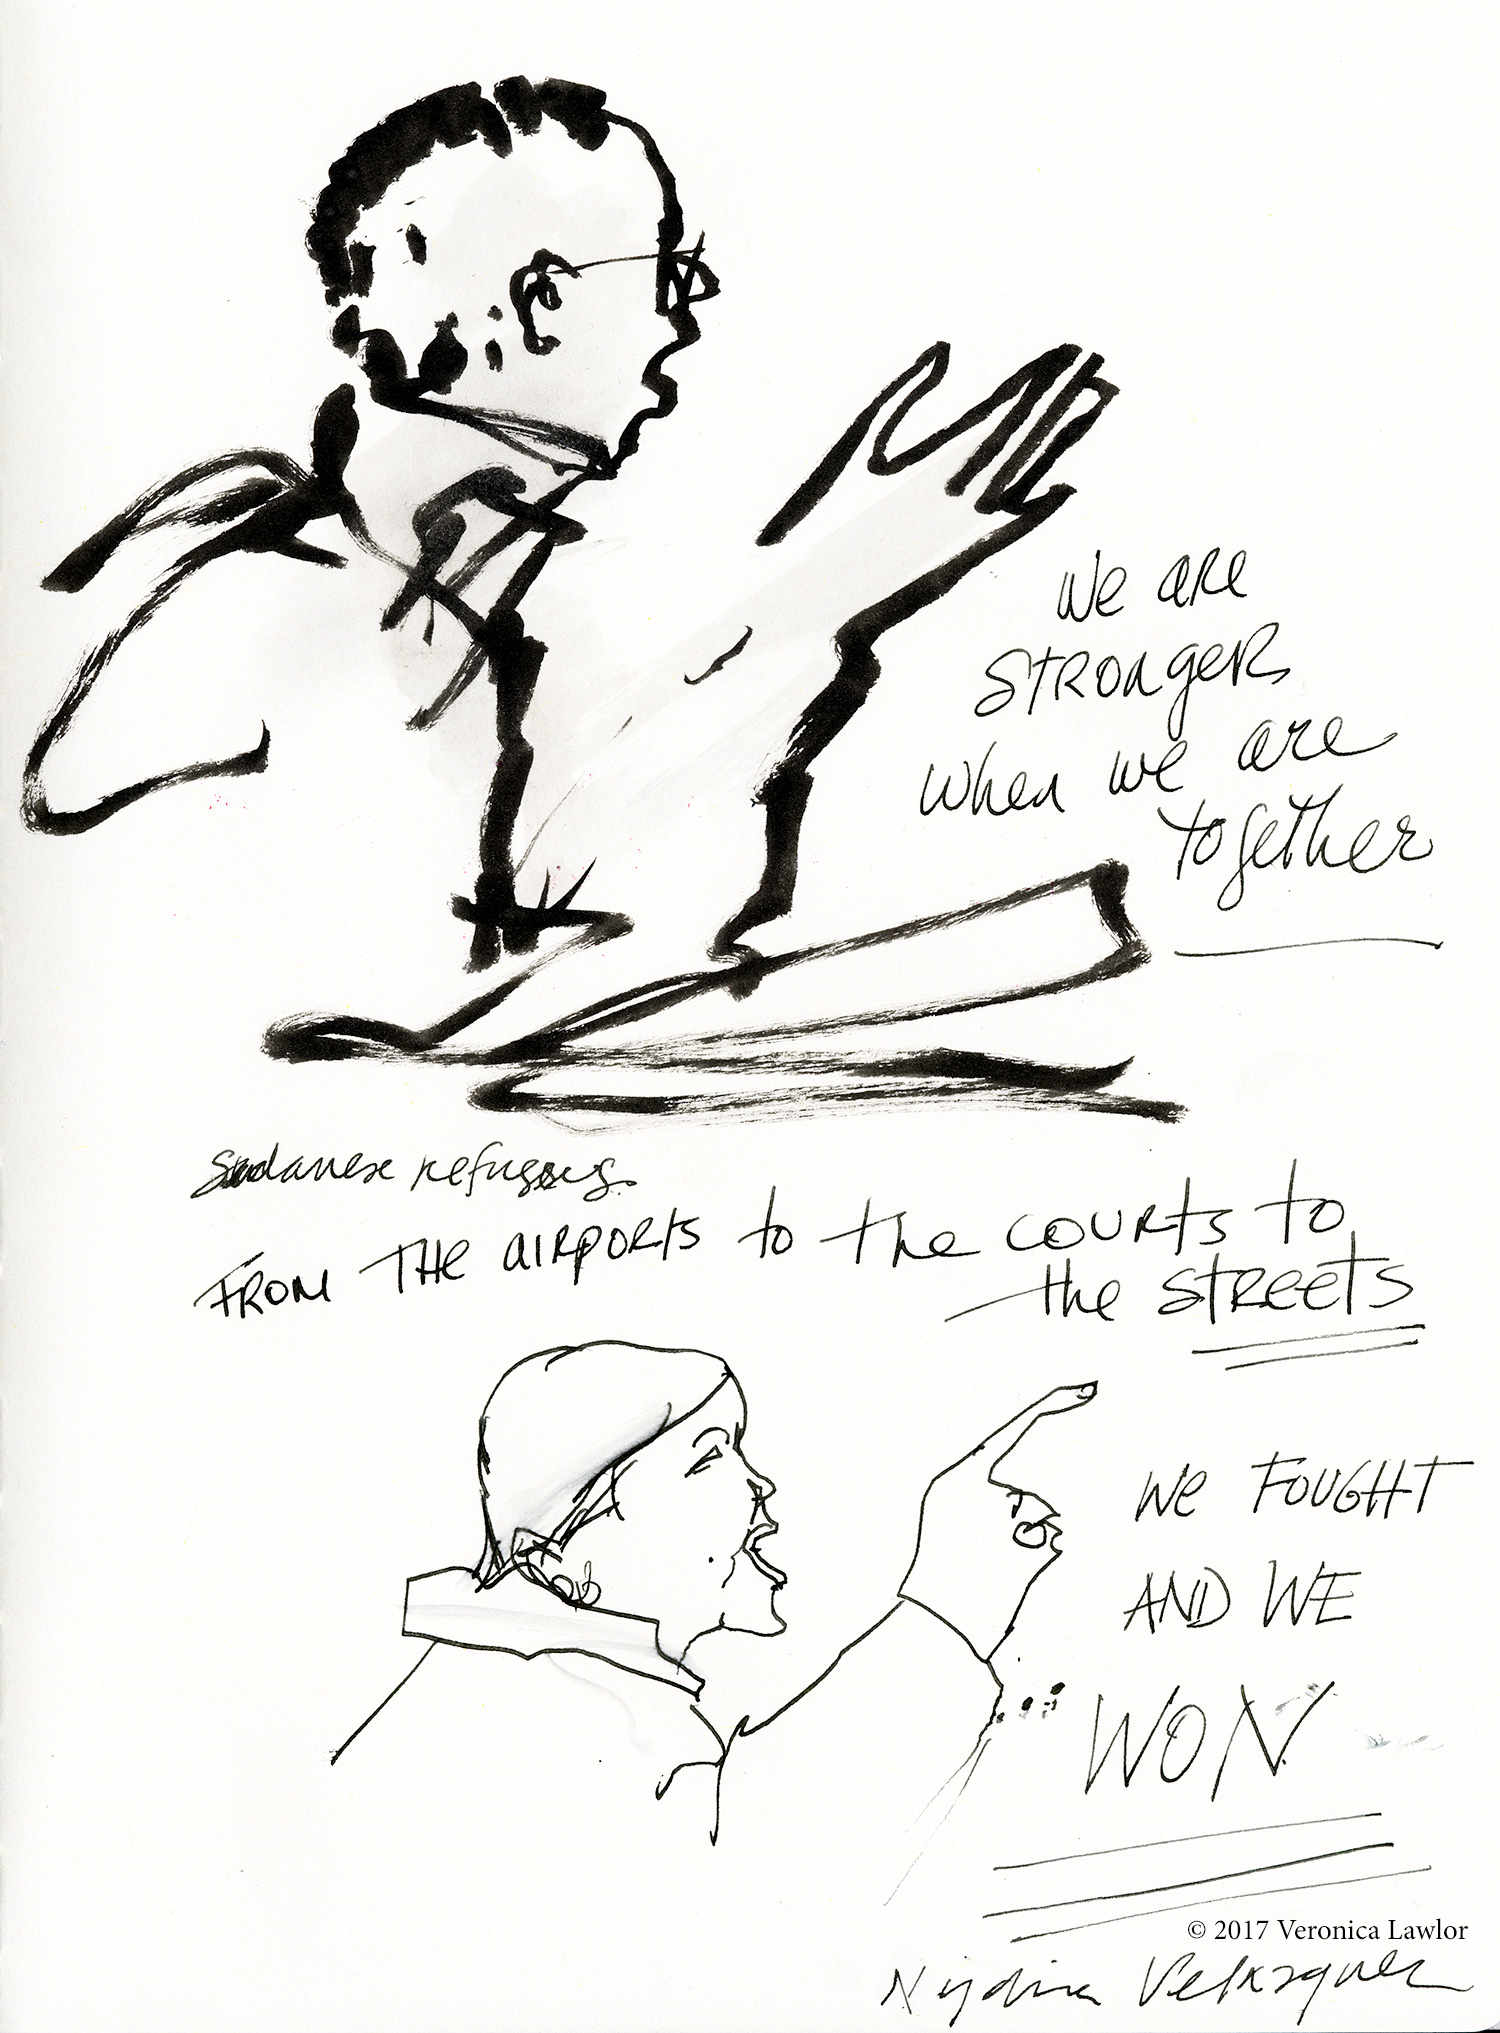 We are
Stronger
when we are
together
Sudanese refugees
From The airports to the courts to
the streets
We Fought
AND WE
WON
© 2017 Veronica Lawlor
Nydia Velazquez